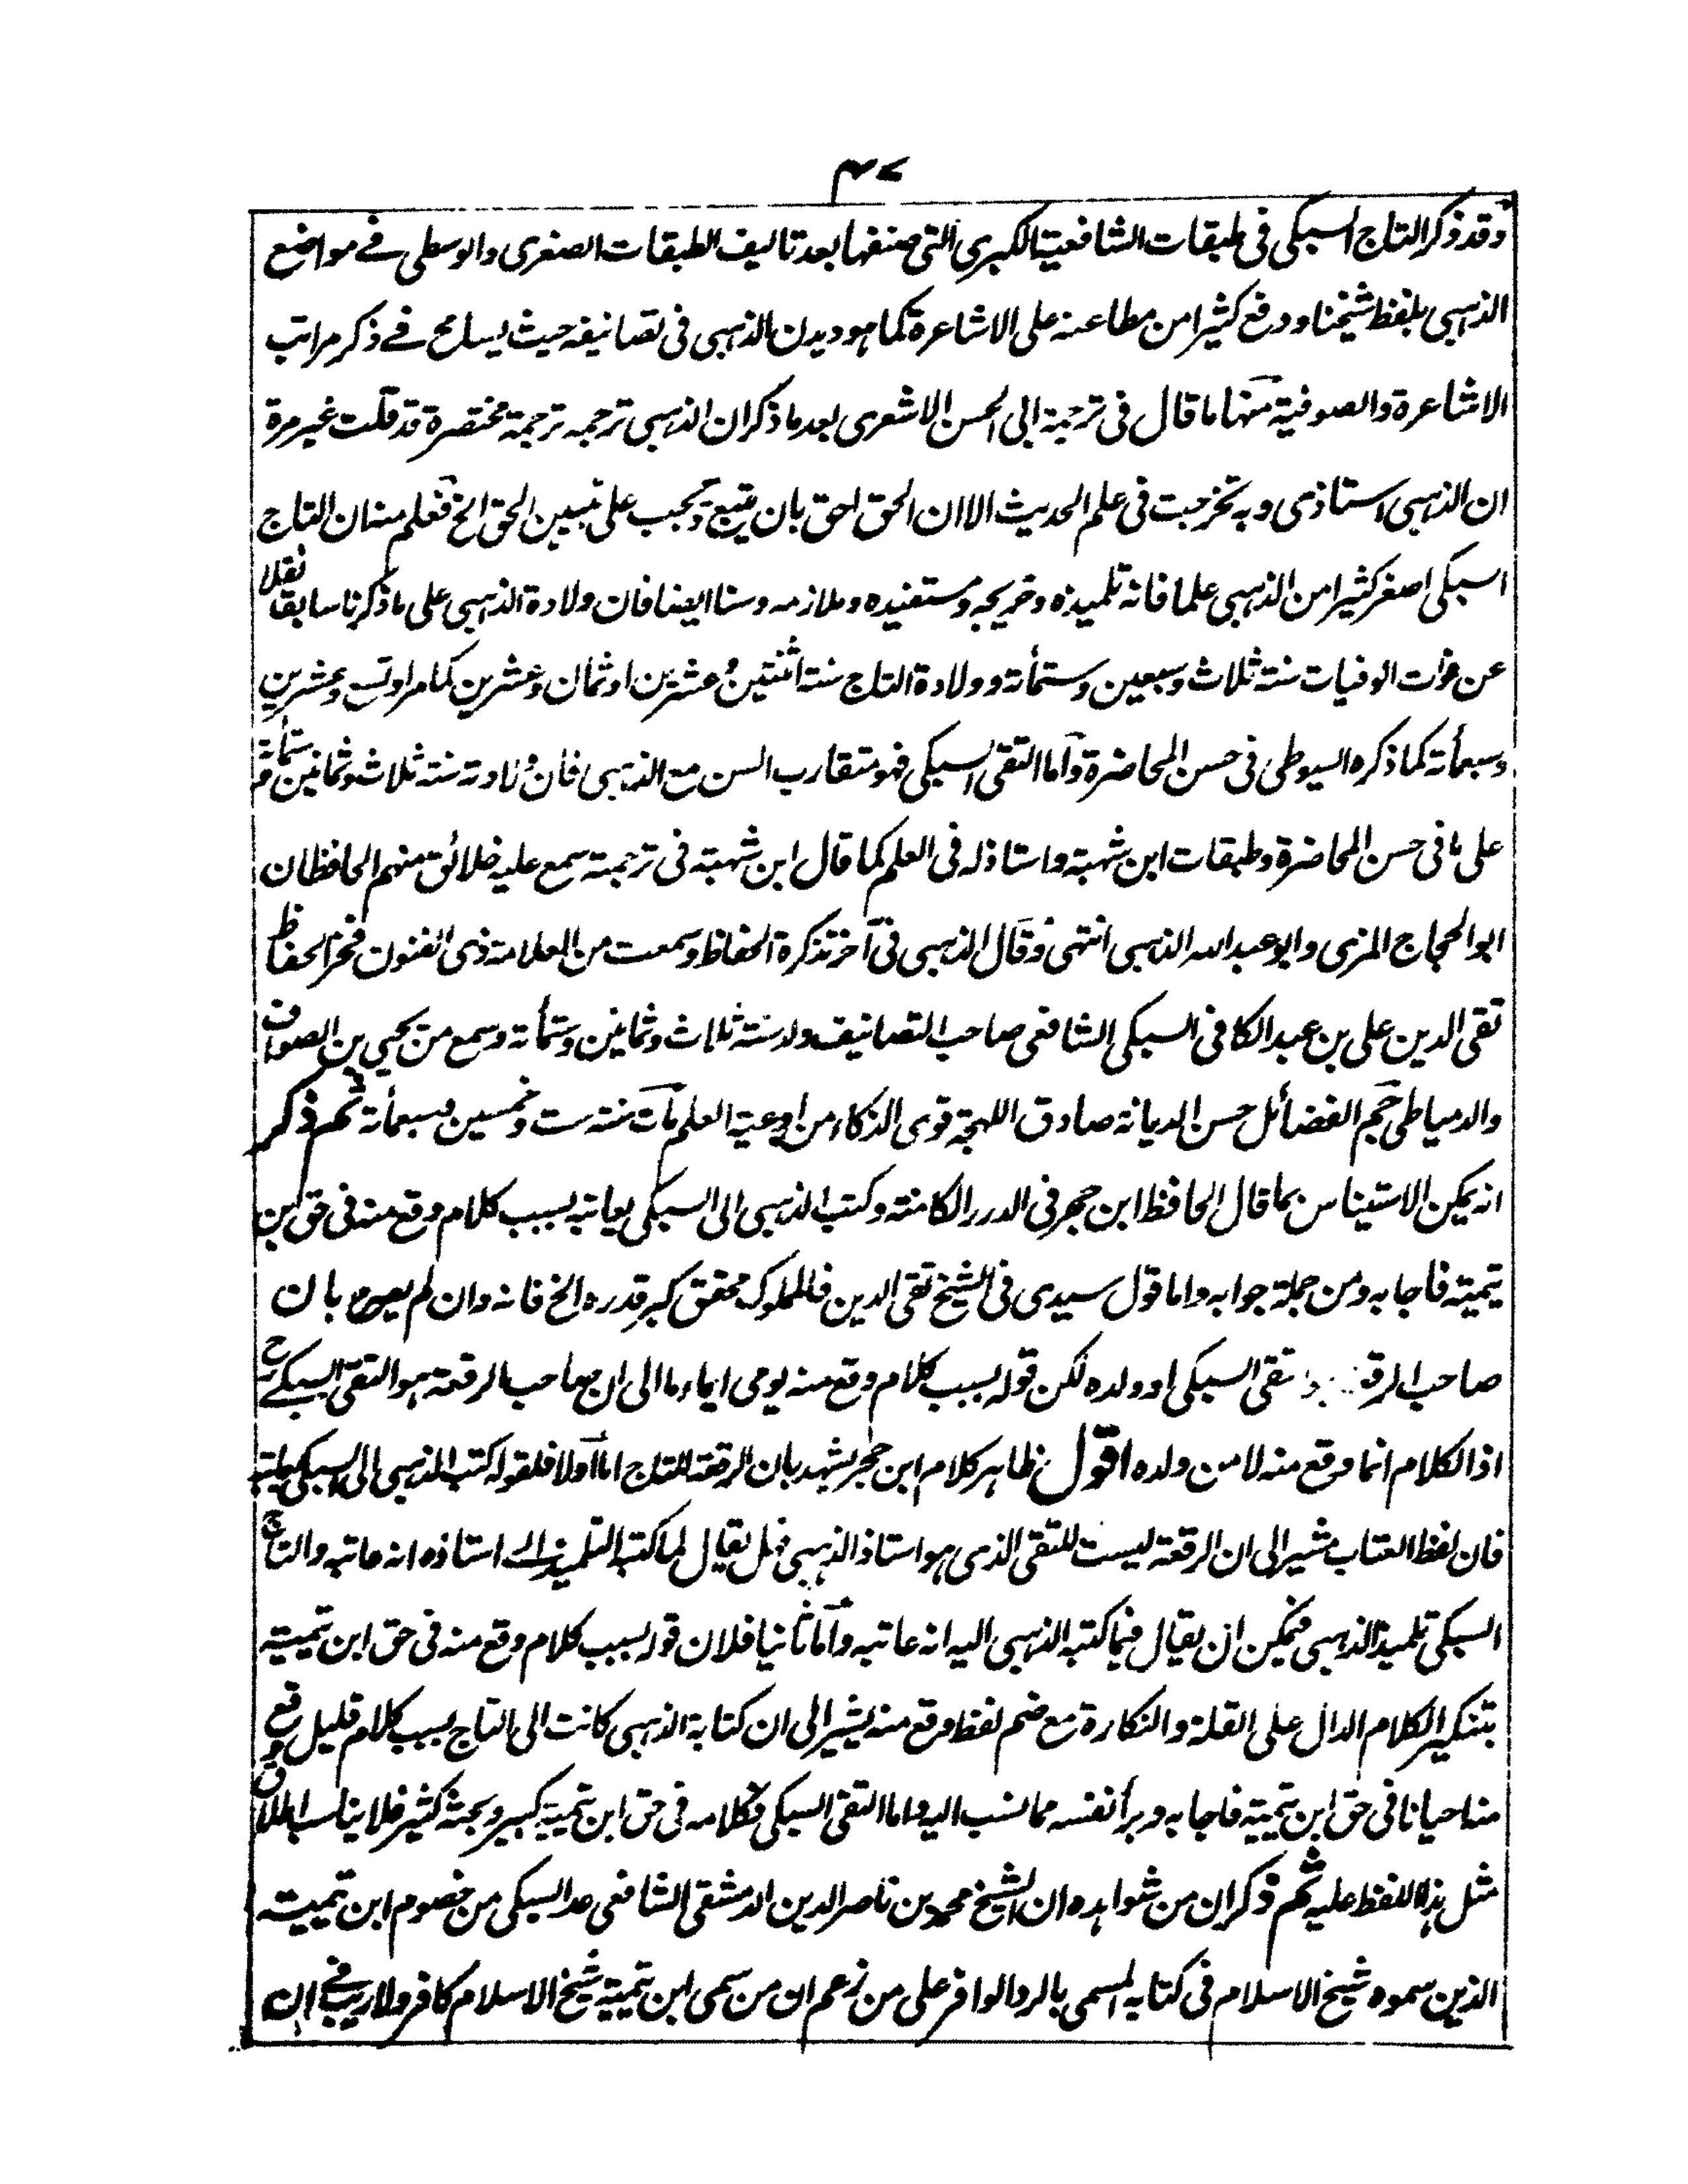 ٤٧
وقد ذكر التاج السبكى فى طبقات الشافعية الكبرى التى صنفها بعد تاليف الطبقات الصغرى والوسطى فے مواضع
الذهبى بلفظ شيخنا ودفع كثيرا من مطاعنه على الاشاعرة كما هو ديدن الذهبى فى تصانيفه حيث يسامح فے ذكر مراتب
الاشاعرة والصوفية منها ما قال فى ترجمة ابى الحسن الاشعرى بعد ما ذكر ان الذهبى ترجمه ترجمة مختصرة قد قلت غير مرة
ان الذهبى استاذى وبه تخرجت فى علم الحديث الا ان الحق احق بان يتبع ويجب على تبيين الحق الخ فعلم منه ان التاج
السبكى اصغر كثيرا من الذهبى علما فانه تلميذه وخريجه ومستفيده وملازمه وسنا ايضا فان ولادة الذهبى على ما ذكرنا سابقا نقلا
عن فوات الوفيات سنة ثلاث وسبعين وستمأتة وولادة التاج سنة اثنتين وعشرين او ثمان وعشرين كما مر او تسع وعشرين
وسبعمأتة كما ذكره السيوطى فى حسن المحاضرة واما التقى السبكى فهو متقارب السن مع الذهبى فان ولادته سنة ثلاث وثمانين وستمأتة
على ما فى حسن المحاضرة وطبقات ابن شهبة واستاذ له فى العلم كما قال ابن شهبة فى ترجمته سمع عليه خلائق منهم الحافظان
ابو الحجاج المزى وابو عبد الله الذهبى انتهى وقال الذهبى فى آخر تذكرة الحفاظ وسمعت من العلامة ذى الفنون فخر الحفاظ
تقى الدين على بن عبد الكافى السبكى الشافعى صاحب التصانيف ولد سنة ثلاث وثمانين وستمأتة وسمع من يحيى بن الصواف
والدمياطى جم الفضائل حسن الديانة صادق اللهجة قوى الذكاء من اوعية العلم مات سنة ست وخمسين وسبعمأتة ثم ذكر
انه يمكن الاستيناس بما قال الحافظ ابن حجر فى الدرر الكامنة وكتب الذهبى الى السبكى يعاتبه بسبب كلام وقع منه فى حق ابن
تيمية فأجابه ومن جملة جوابه واما قول سيدى فى الشيخ تقى الدين فالمملوك محقق كبر قدره الخ فانه وان لم يصرح بان
صاحب الرقعة تقى السبكى او ولده لكن قوله بسبب كلام وقع منه يومى ايماء ما الى ان صاحب الرقعة هو التقى السبكے رح
اذ الكلام انما وقع منه لا من ولده اقول ظاهر كلام ابن حجر يشهد بان الرقعة للتاج اما اولا فلقوله كتب الذهبى الى السبكى يعاتبه
فان لفظ العتاب مشير الى ان الرقعة ليست للتقى الذى هو استاذ الذهبى فهل يقال لما كتبه التلميذ الے استاذه انه عاتبه والتاج
السبكى تلميذ الذهبى فيمكن ان يقال فيما كتبه الذهبى اليه انه عاتبه واما ثانيا فلان قوله بسبب كلام وقع منه فى حق ابن تيمية
بتنكير الكلام الدال على القلة والنكارة مع ضم لفظ وقع منه يشير الى ان كتابة الذهبى كانت الى التاج بسبب كلام قليل وقع
منه احيانا فى حق ابن تيمية فاجابه وبرأ نفسه مما نسب اليه واما التقى السبكى فكلامه فى حق ابن تيمية كبير وبحثه كثير فلا يناسب اطلاق
مثل هذا اللفظ عليه ثم ذكر ان من شواهده ان الشيخ محمد بن ناصر الدين الدمشقى الشافعى عد السبكى من خصوم ابن تيمية
الذين سموه شيخ الاسلام فى كتابه المسمى بالرد الوافر على من زعم ان من سمى ابن تيمية شيخ الاسلام كافر ولا ريب فے ان